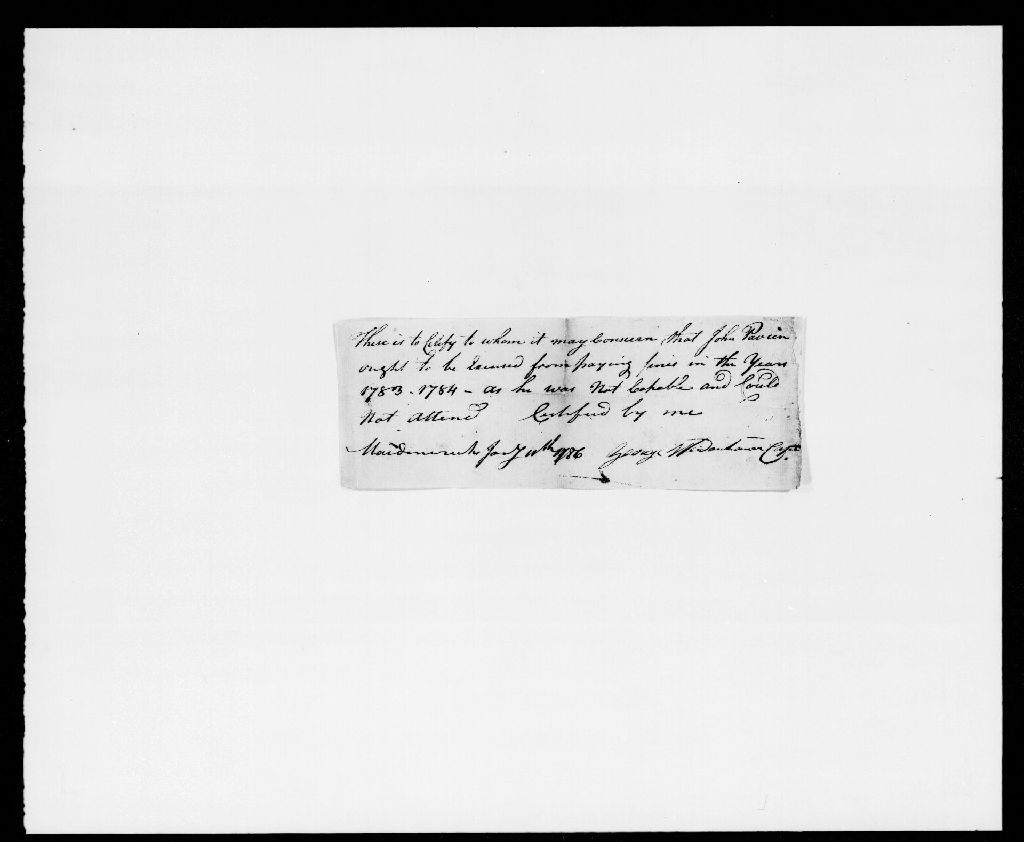 These is to Cetify to whom it may Conscern that John Pavien
ought to be Excused from paying fines in the Years
1783 - 1784 - as he was Not Capable and Could
Not Attend Certifyed by me
Maidencreek Jany 10th 1786 George Capt